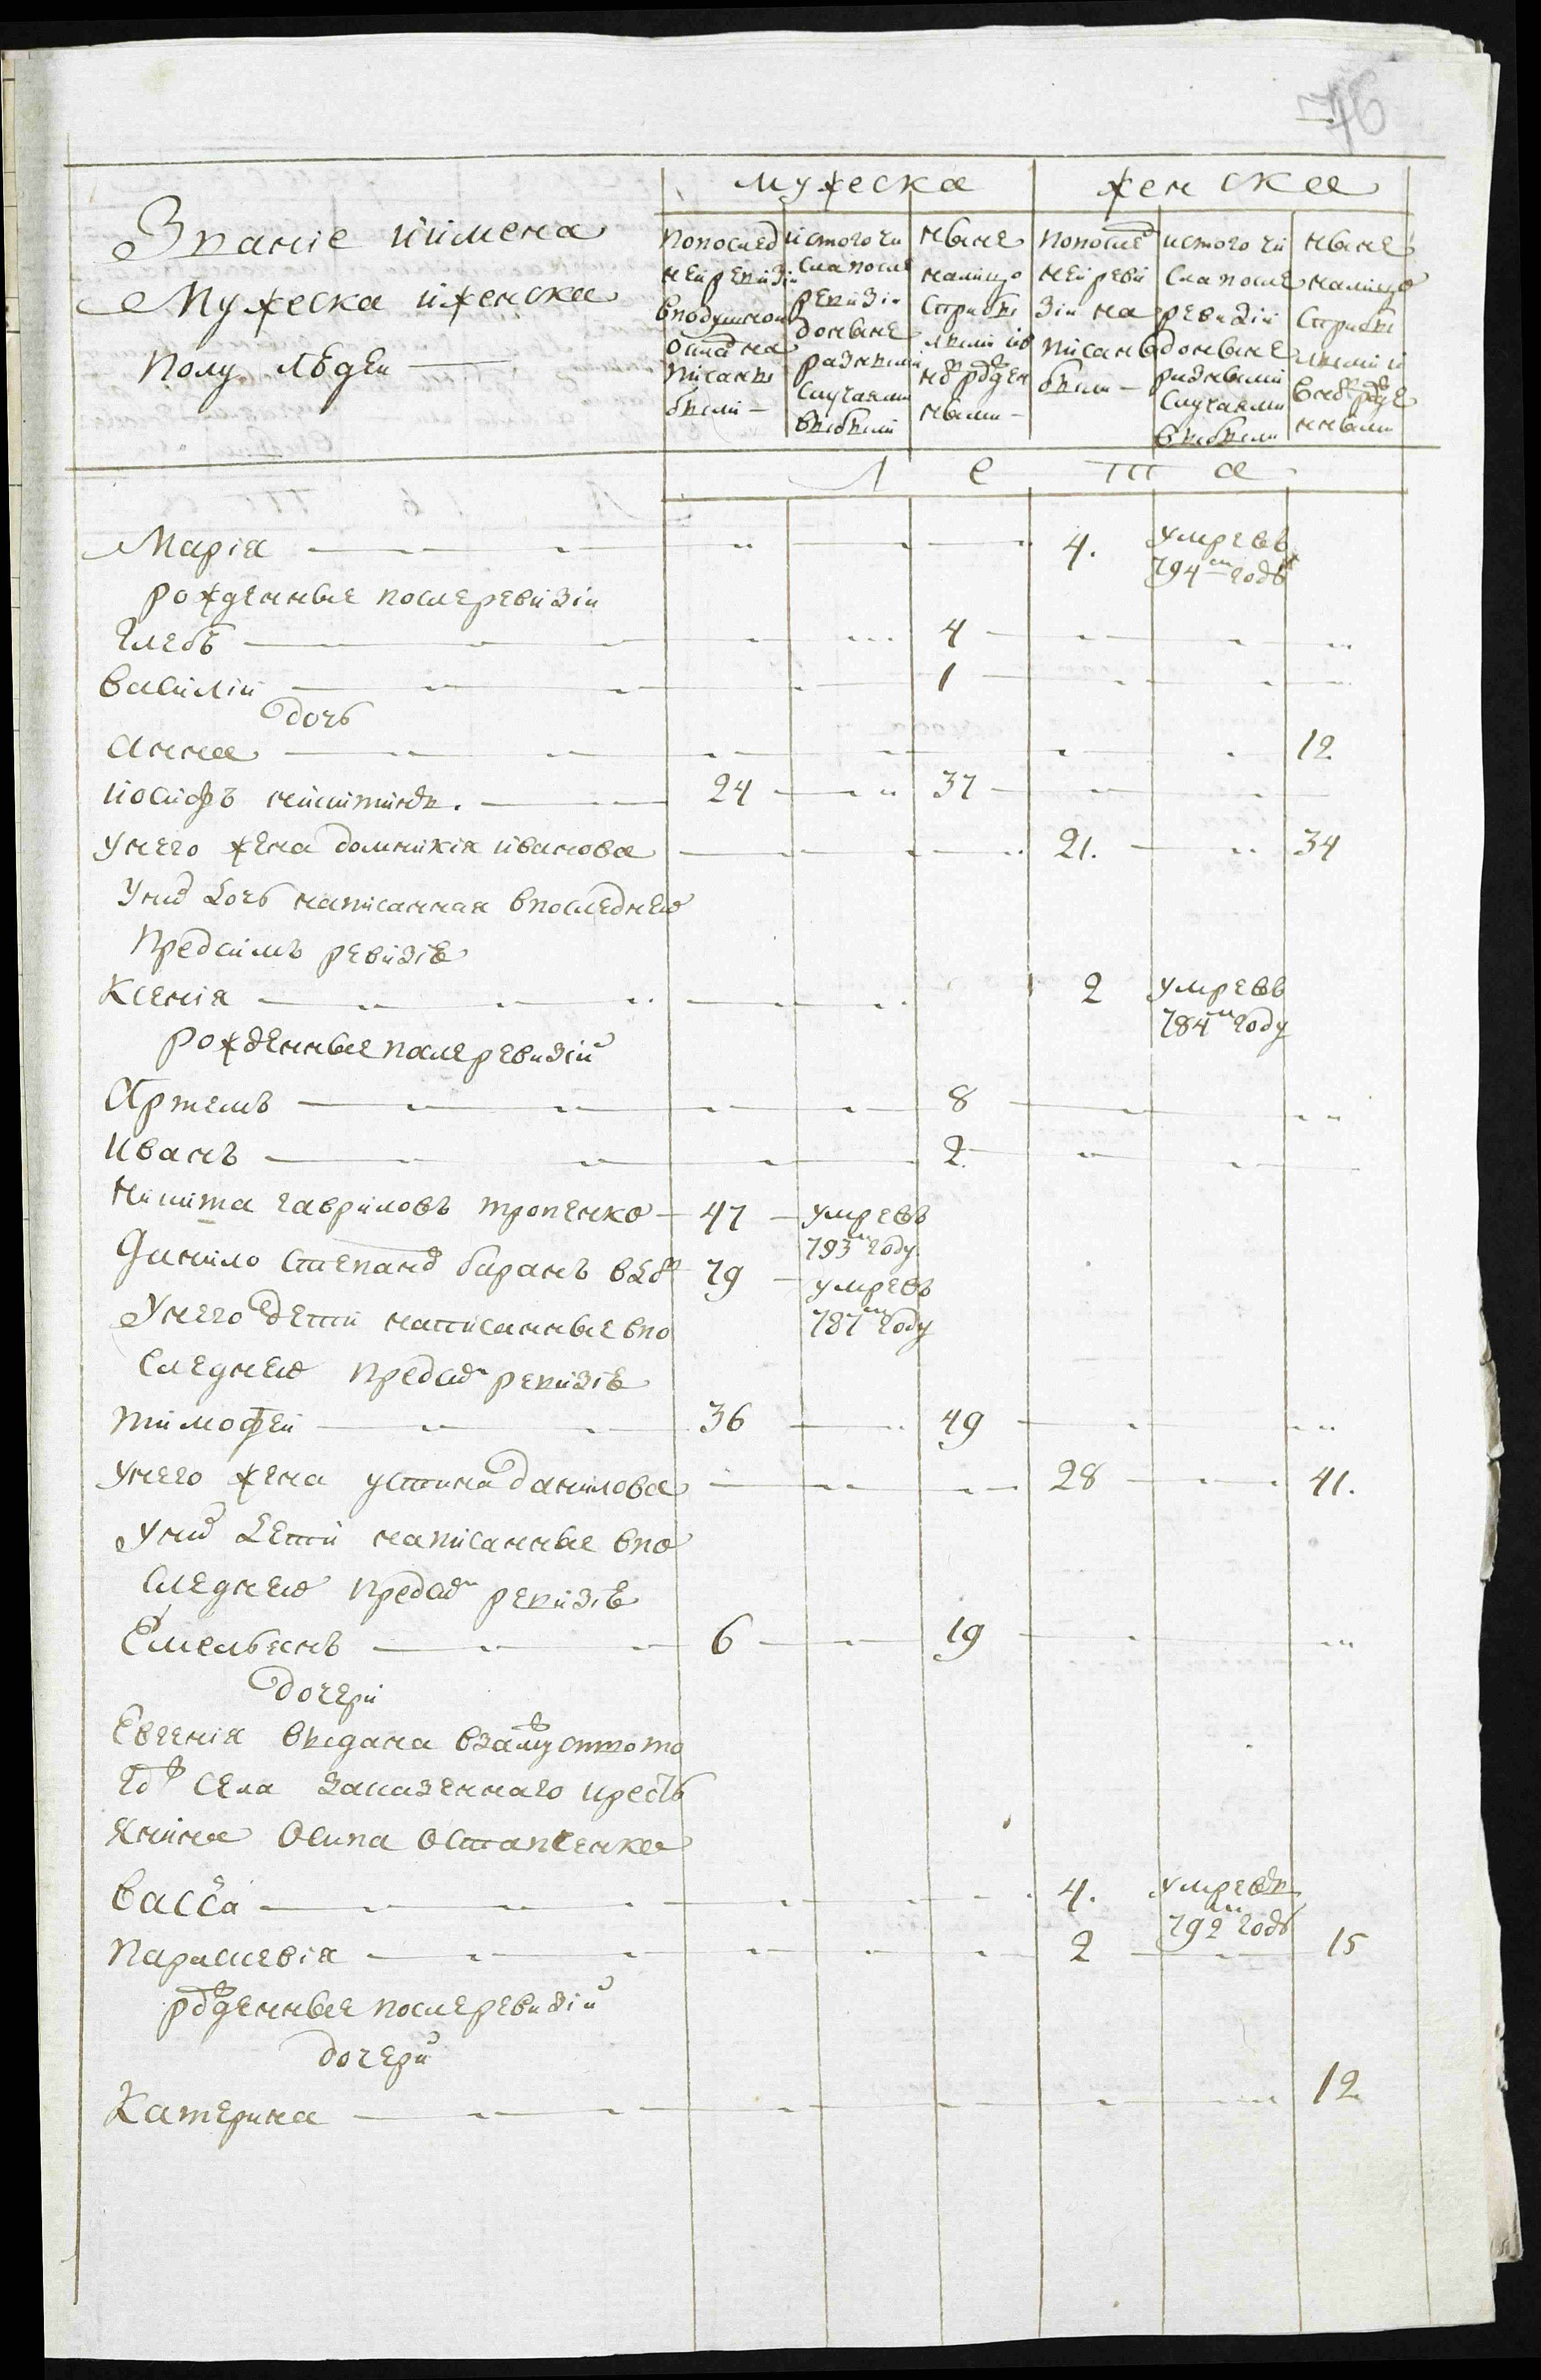 76
Званіе иимена
Мужеска иженска
полу людеи
мужеска
женска
попослед
неи ревизіи
вподушном
окладе на
писаны
были
истого чи
сла после
ревизіи
доныне
разными
случаями
выбыли
ныне
налицо
сприбы
лыми ив
новь рожден
ными
попослед
неи реви
зіи на
писаны
были
истого чи
сла после
ревизіи
доныне
разными
случаями
выбыли
ныне
налицо
сприбы
лыми и
вновь рожде
нными
Л е т а
Марія 4. умре въ
794м годѣ
рожденные после ревизіи
Глебъ 4
Василіи 1
дочь
Анна 12
иосифъ никитинъ. 24 37
унего жена домникія иванова 21. 34
Уних дочь написанная впоследнею
Предсимъ ревизіѣ
Ксенія 2 умре въ
784м году
рожденные после ревизіи
Артемъ 8
Иванъ 2.
Никита гавриловъ тропенко 47 умре въ
793м году
Данило степанов баранъ вдов 79 умре въ
787м году
Унего дети написанные впо
следнею предсим ревизіѣ
тимофеи 36 49
унего жена устина данилова 28 41.
Уних дети написанные впо
следнею предсим ревизіѣ
Емельянъ 6 19
дочери
Евгенія выдана взамуж тото
гож села заказенного крестъ
янина Осипа Остапенка
Васса 4. умре въ
792м годѣ
Параскевія 2 15
рожденные после ревизіи
дочери
Катерина 12